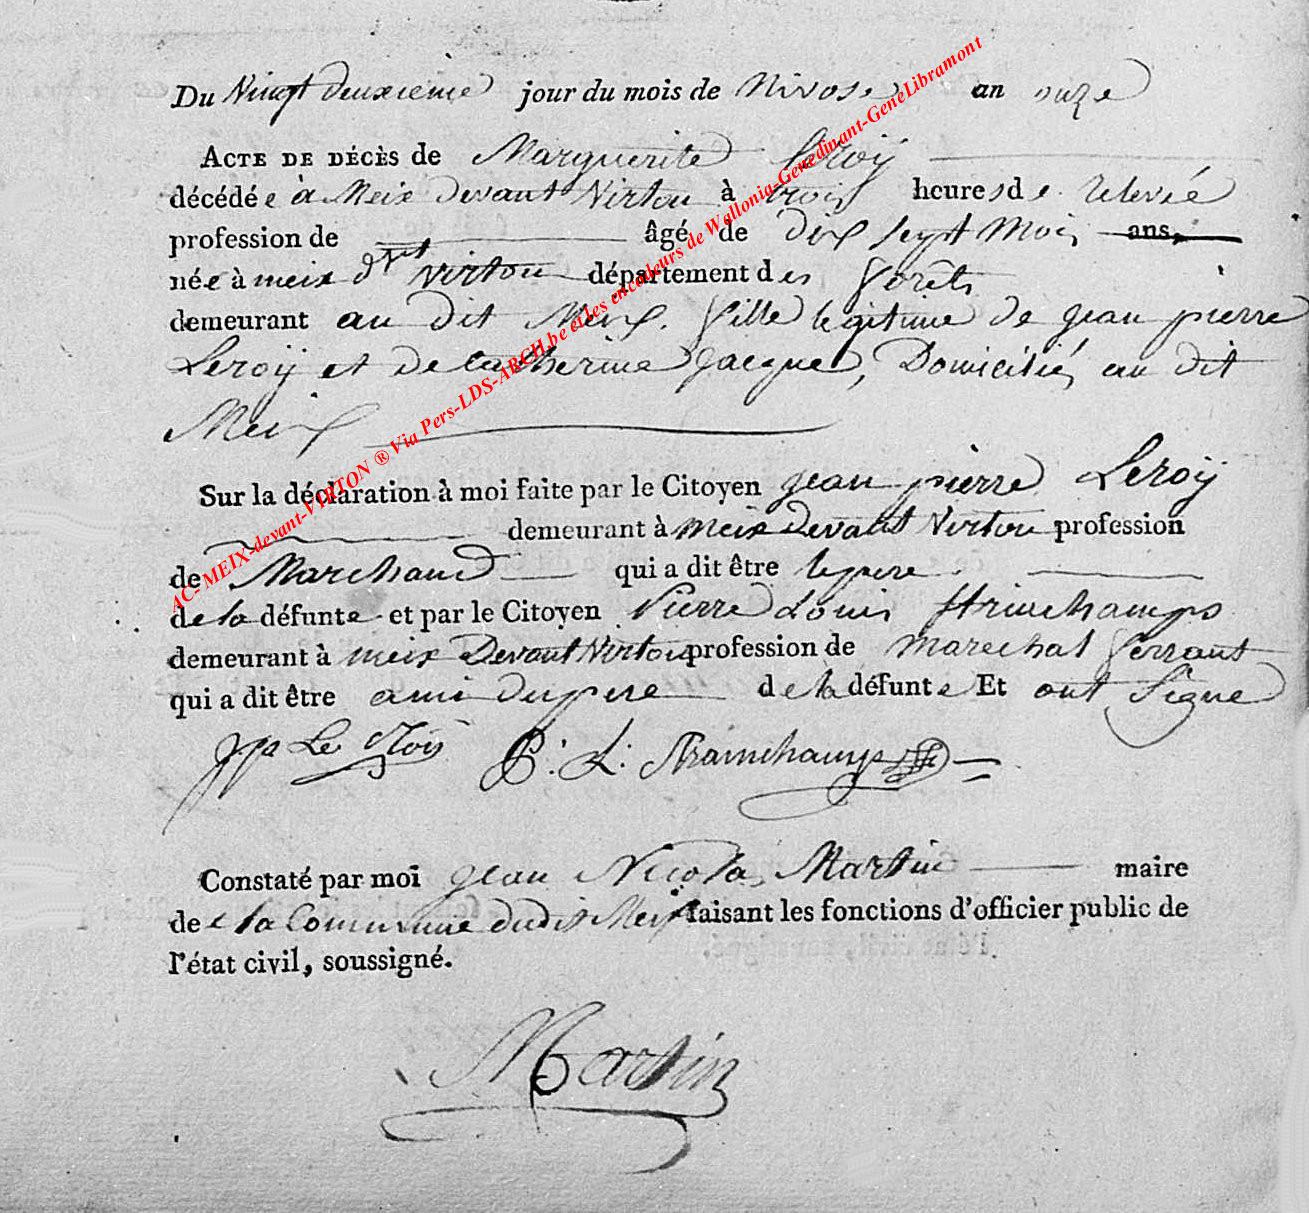 Du Vingt deuxieme jour du mois de Nivose an onze
ACTE DE DÉCÈS de Marguerite Leroÿ
décédée à Meix devant Virton à trois heures de relevée
profession de âgé de dix sept Mois ans,
née à meix dvt Virton département des forêts
demeurant au dit Meix. fille legitime de jean pierre
Leroÿ et de Catherine jacque, Domiciliés au dit
Meix
Sur la déclaration à moi faite par le Citoyen jean pierre Leroÿ
demeurant à meix Devant Virton profession
de Marchand qui a dit être le pere
de la défunte et par le Citoyen Pierre Louis
demeurant à meix Devant Virton profession de marechal ferrant
qui a dit être ami du pere de la défunte Et ont Signé
jp Le Rois P. L.
Constaté par moi jean Nicolas Martin maire
de la Commune dudit Meix faisant les fonctions d'officier public de
l'état civil, soussigné.
Martin
AC-MEIX-devant-VIRTON ® Via Pers-LDS-ARCH.be et les encodeurs de Wallonia-Genedinant-GeneLibramont